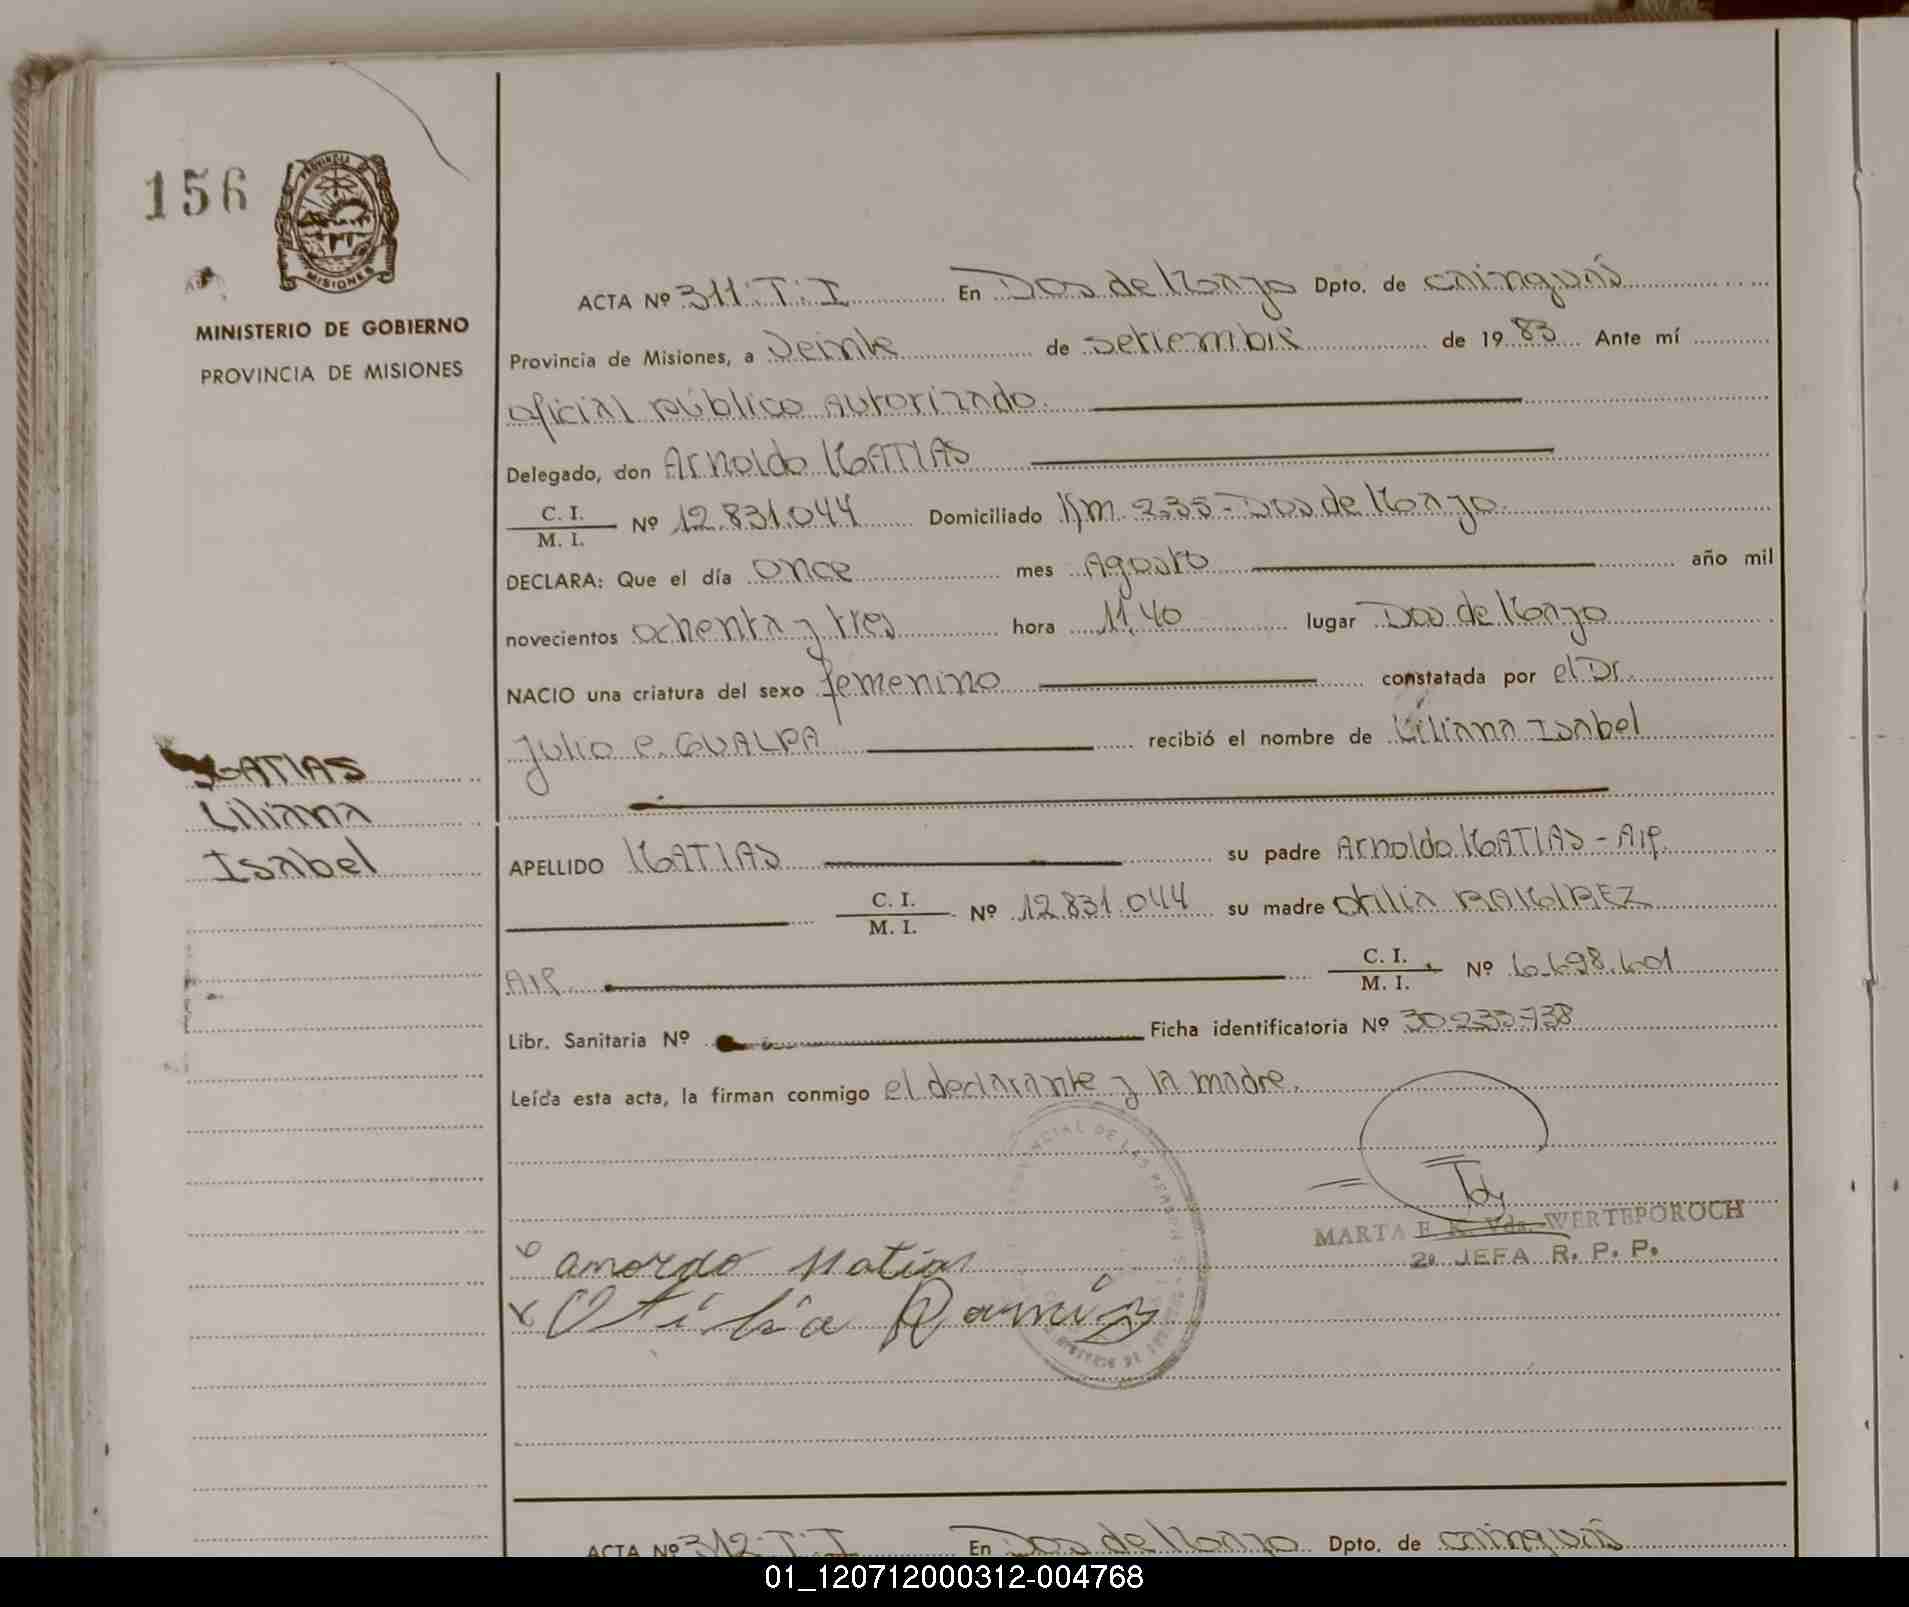 156
PROVINCIA DE
MISIONES
MINISTERIO DE GOBIERNO
PROVINCIA DE MISIONES
MATIAS
Liliana
Isabel
ACTA Nº 311. T. I En Dos de Mayo Dpto. de Cainguás
Provincia de Misiones, a Veinte de setiembre de 1983 Ante mí
oficial público autorizado.
Delegado, don Arnoldo MATIAS
C. I. / M. I. Nº 12.831.044 Domiciliado Km 235 - Dos de Mayo.
DECLARA: Que el día once mes Agosto año mil
novecientos ochenta y tres hora 11,40 lugar Dos de Mayo
NACIO una criatura del sexo femenino constatada por el Dr.
Julio C. GUALPA recibió el nombre de Liliana Isabel
APELLIDO MATIAS su padre Arnoldo MATIAS - Arg.
C. I. / M. I. Nº 12.831.044 su madre Otilia RAMIREZ
Arg. C. I. / M. I. Nº 6.698.601
Libr. Sanitaria Nº Ficha identificatoria Nº 30.235.738
Leída esta acta, la firman conmigo el declarante y la madre.
MARTA E. K. Vda. WERTEPOROCH
2ª JEFA R. P. P.
Arnordo Matias
Otilia Ramirez
ACTA Nº 312. T. I En Dos de Mayo Dpto. de Cainguás
01_120712000312-004768